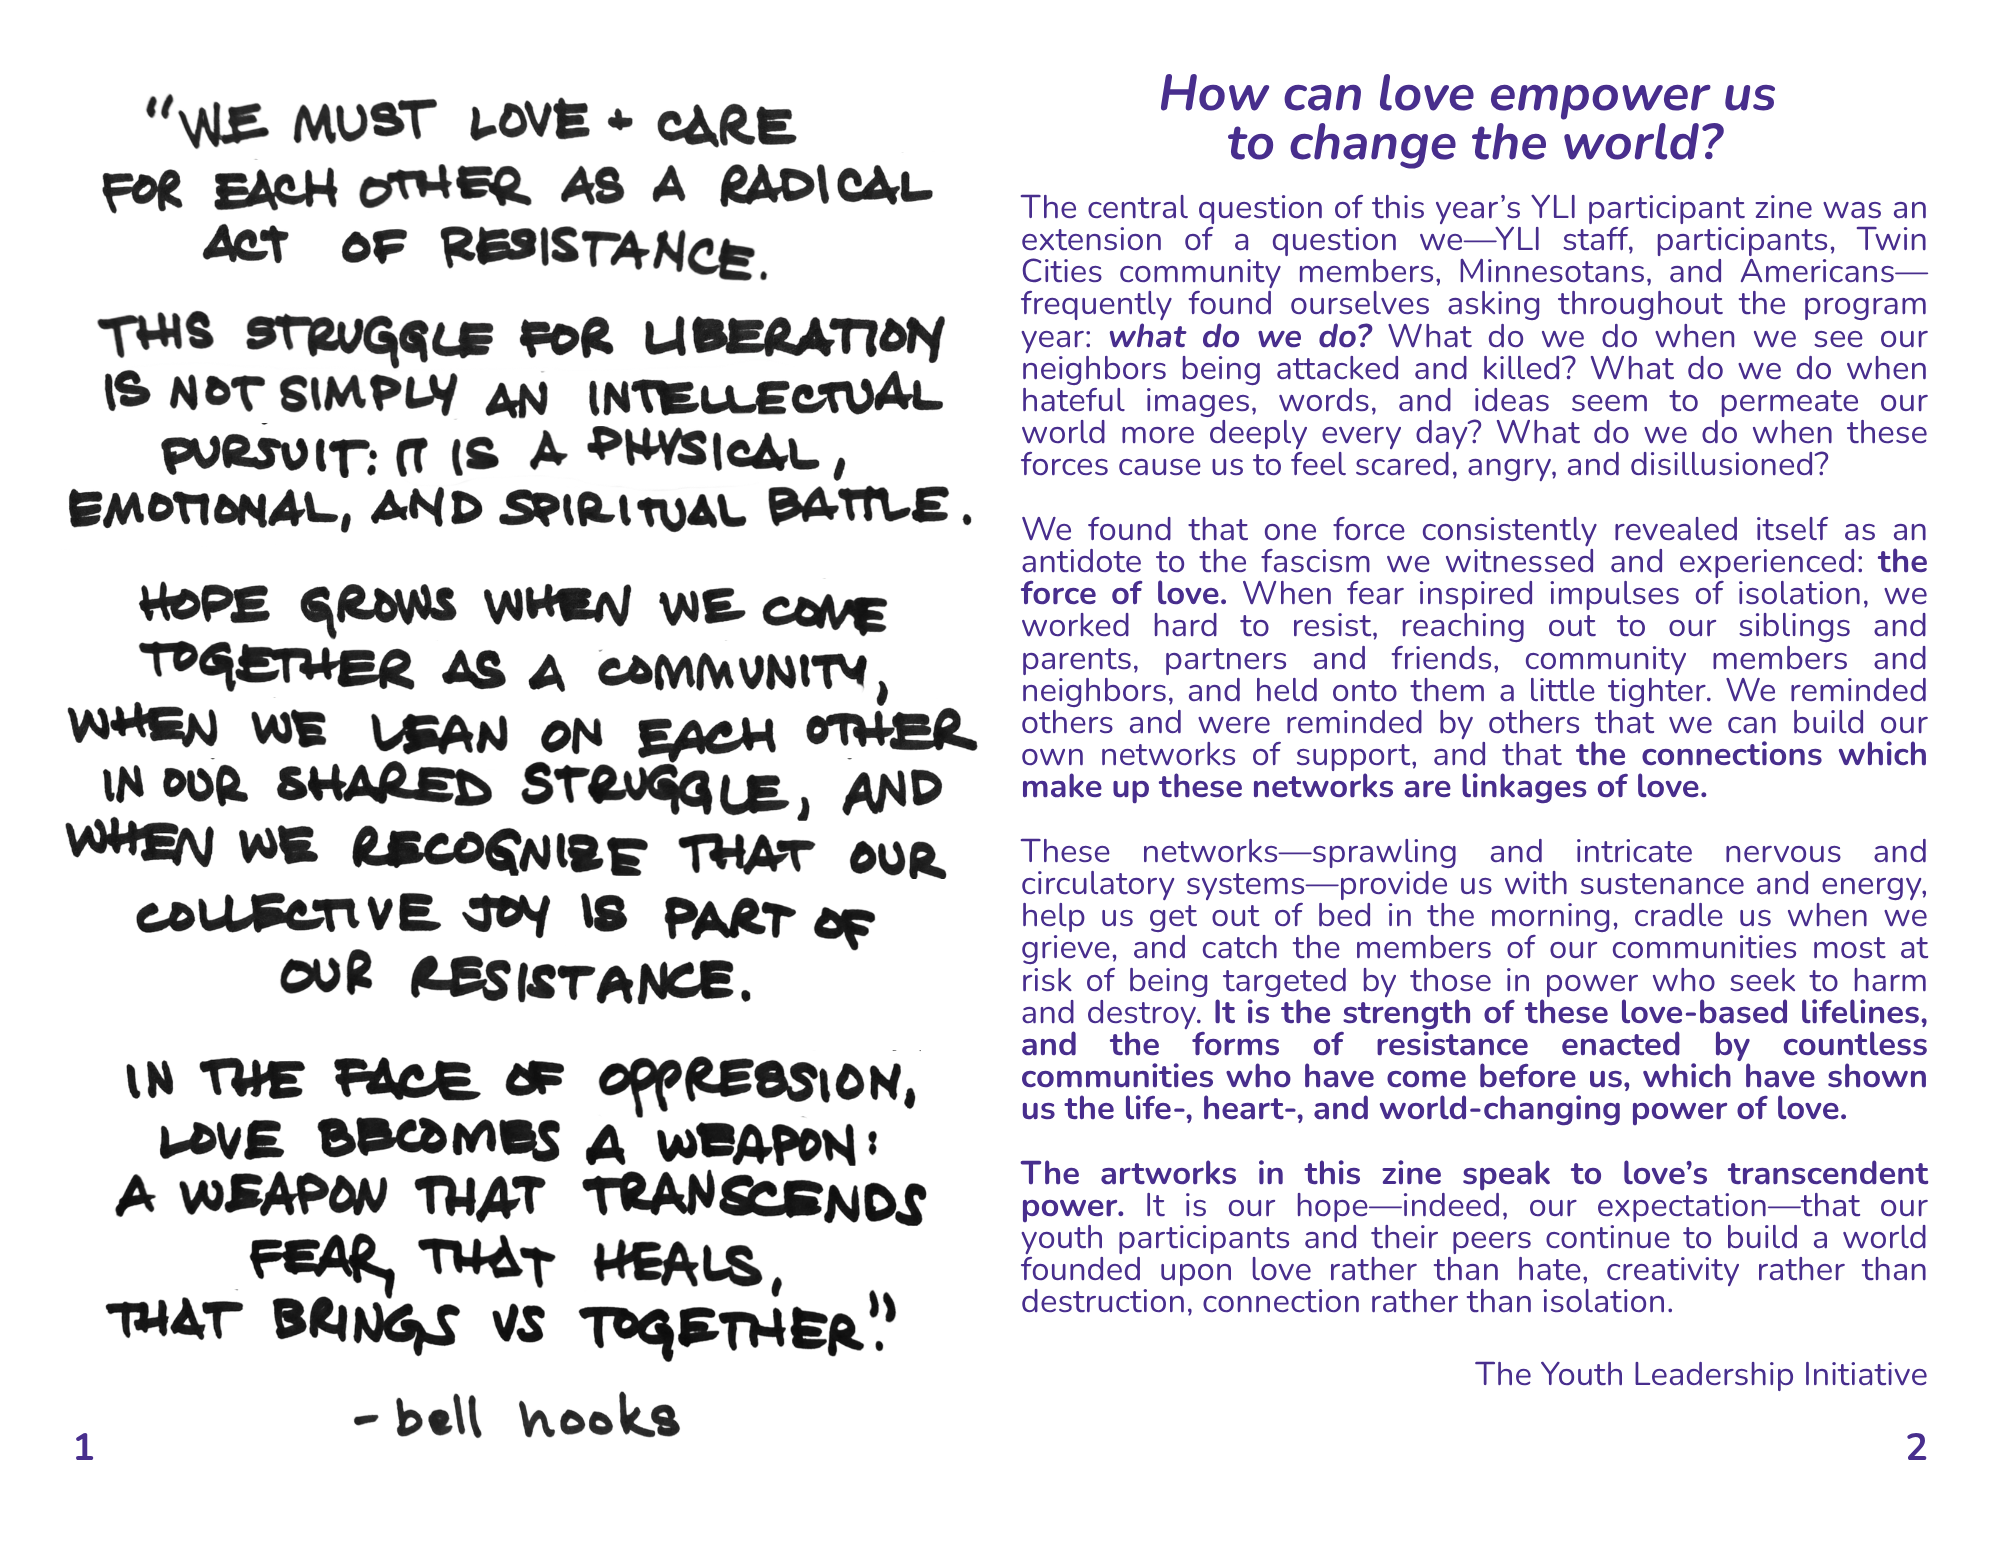 “WE MUST LOVE + CARE
FOR EACH OTHER AS A RADICAL
ACT OF RESISTANCE.
THIS STRUGGLE FOR LIBERATION
IS NOT SIMPLY AN INTELLECTUAL
PURSUIT: IT IS A PHYSICAL,
EMOTIONAL, AND SPIRITUAL BATTLE.
HOPE GROWS WHEN WE COME
TOGETHER AS A COMMUNITY,
WHEN WE LEAN ON EACH OTHER
IN OUR SHARED STRUGGLE, AND
WHEN WE RECOGNIZE THAT OUR
COLLECTIVE JOY IS PART OF
OUR RESISTANCE.
IN THE FACE OF OPPRESSION,
LOVE BECOMES A WEAPON:
A WEAPON THAT TRANSCENDS
FEAR, THAT HEALS,
THAT BRINGS US TOGETHER.”
- bell hooks
1
How can love empower us
to change the world?
The central question of this year’s YLI participant zine was an
extension of a question we—YLI staff, participants, Twin
Cities community members, Minnesotans, and Americans—
frequently found ourselves asking throughout the program
year: what do we do? What do we do when we see our
neighbors being attacked and killed? What do we do when
hateful images, words, and ideas seem to permeate our
world more deeply every day? What do we do when these
forces cause us to feel scared, angry, and disillusioned?
We found that one force consistently revealed itself as an
antidote to the fascism we witnessed and experienced: the
force of love. When fear inspired impulses of isolation, we
worked hard to resist, reaching out to our siblings and
parents, partners and friends, community members and
neighbors, and held onto them a little tighter. We reminded
others and were reminded by others that we can build our
own networks of support, and that the connections which
make up these networks are linkages of love.
These networks—sprawling and intricate nervous and
circulatory systems—provide us with sustenance and energy,
help us get out of bed in the morning, cradle us when we
grieve, and catch the members of our communities most at
risk of being targeted by those in power who seek to harm
and destroy. It is the strength of these love-based lifelines,
and the forms of resistance enacted by countless
communities who have come before us, which have shown
us the life-, heart-, and world-changing power of love.
The artworks in this zine speak to love’s transcendent
power. It is our hope—indeed, our expectation—that our
youth participants and their peers continue to build a world
founded upon love rather than hate, creativity rather than
destruction, connection rather than isolation.
The Youth Leadership Initiative
2